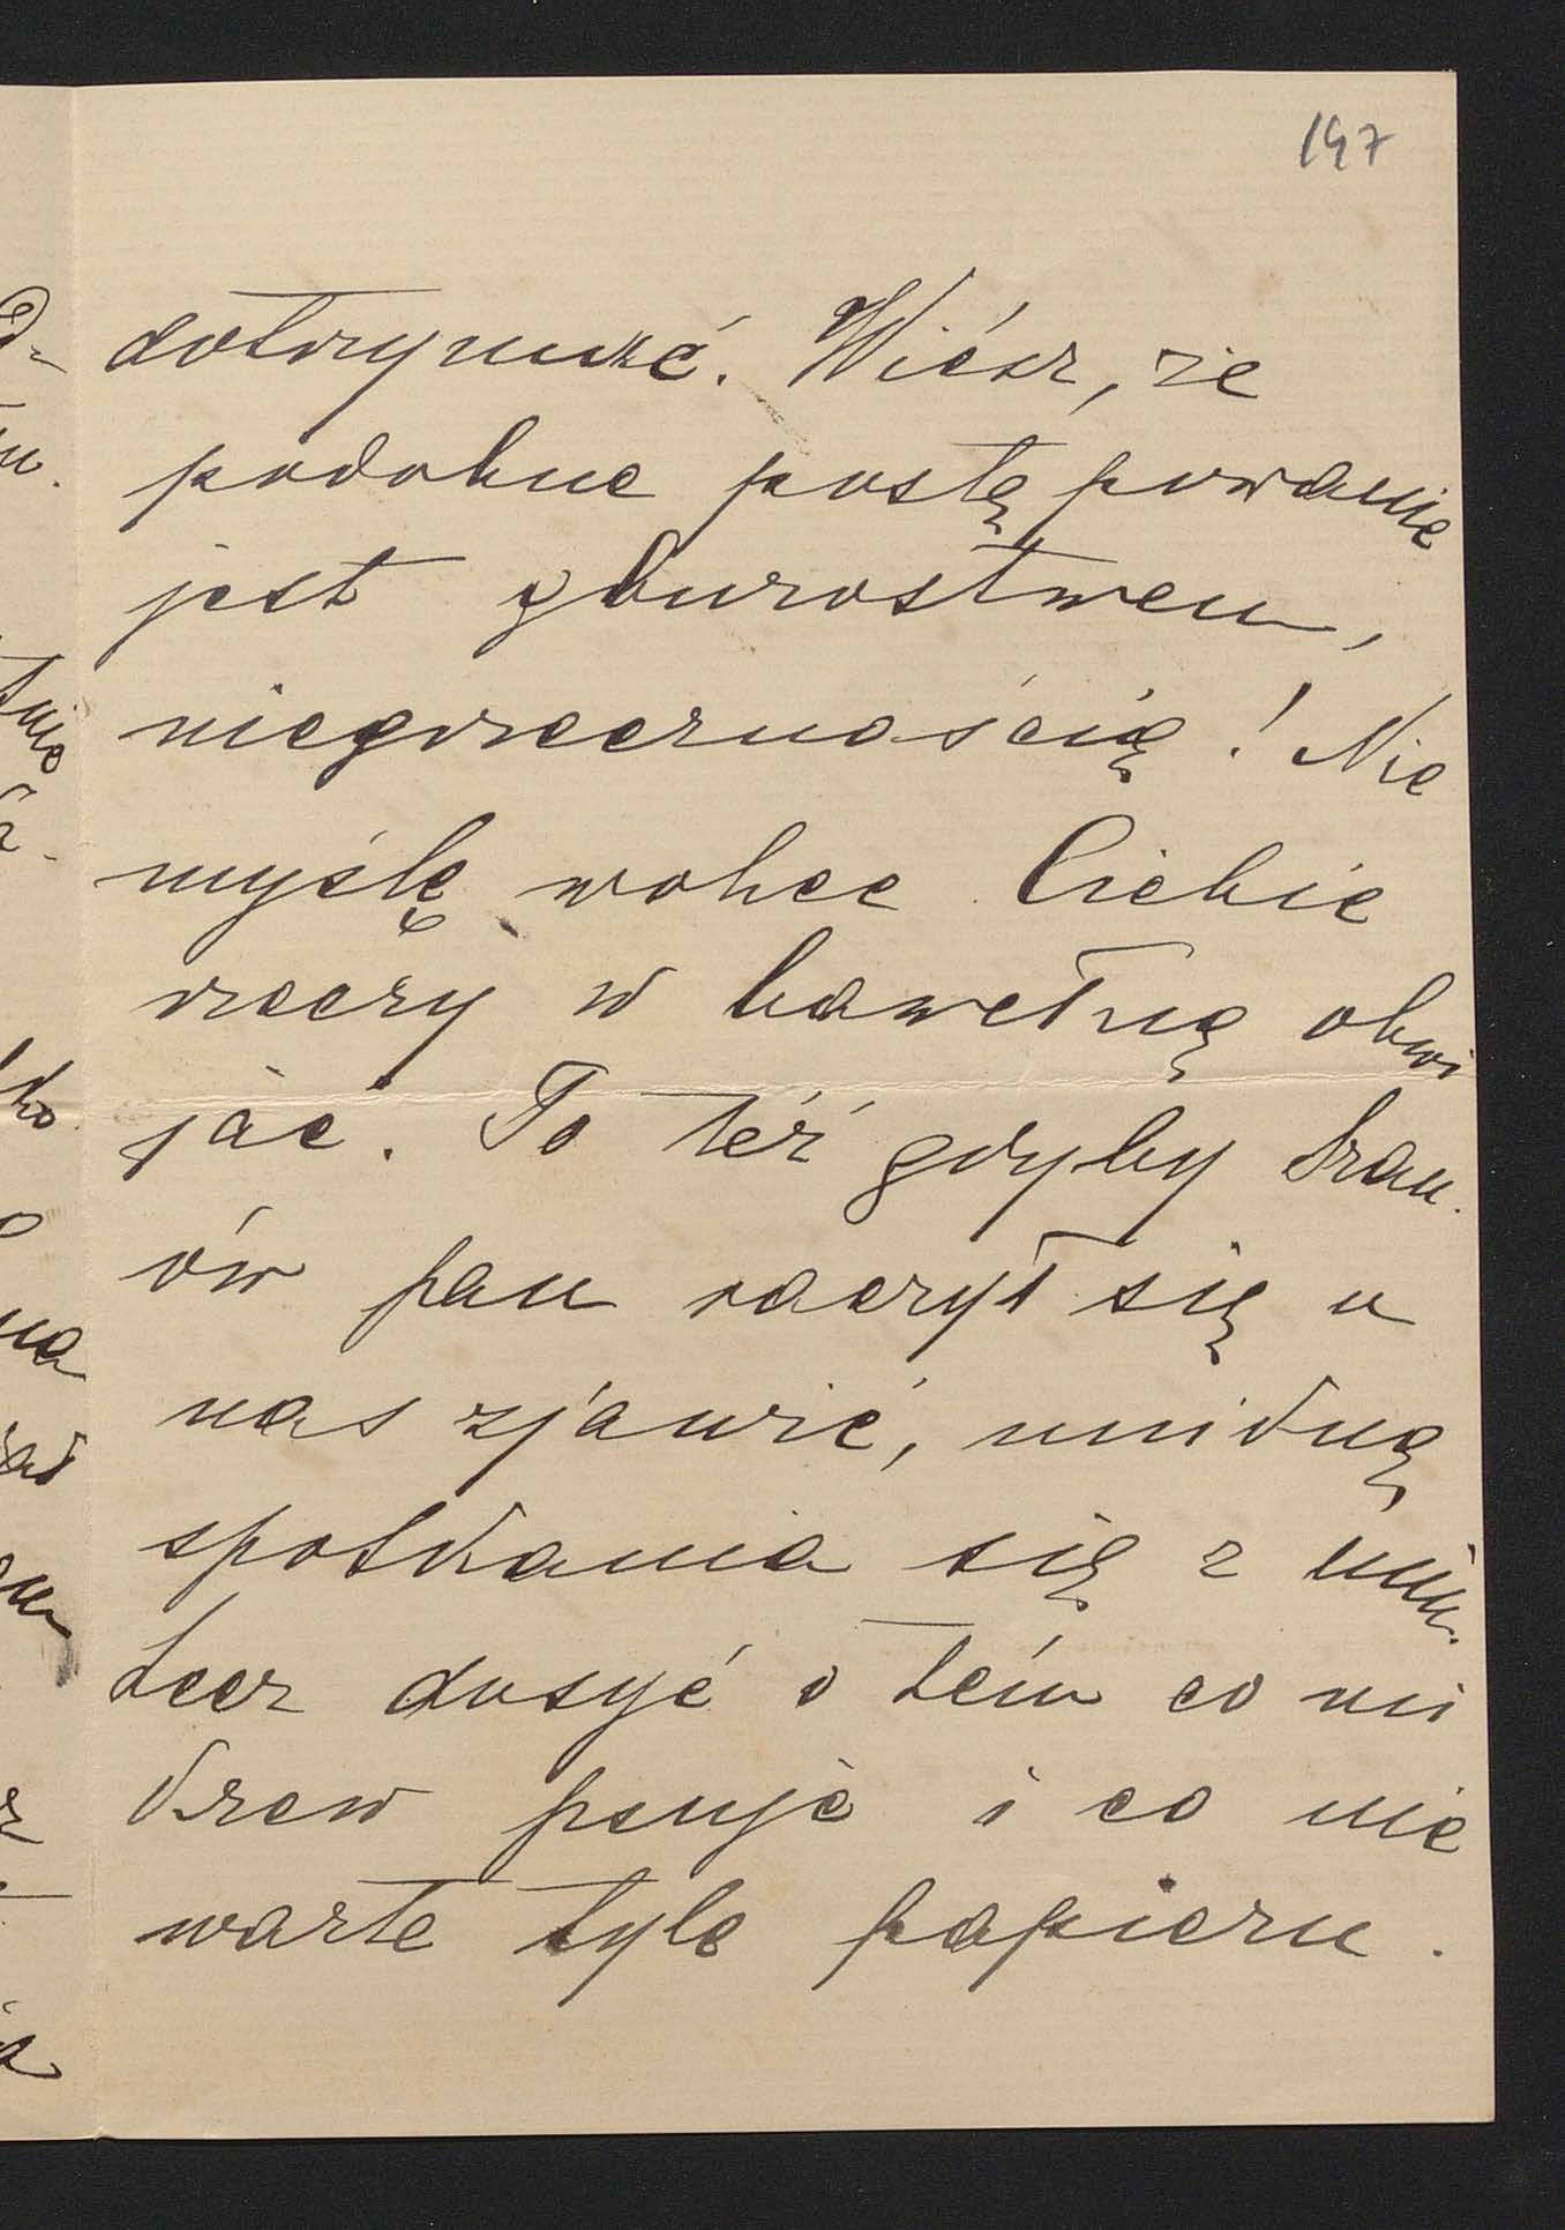 147
dotrzymać. Wiész, że
podobne postępowanie
jest gburostwem,
niegrzecznością! Nie
myślę wobec Ciebie
rzeczy w bawełnę obwi
jać. To też gdyby Szan.
ów pan raczył się u
nas zjawić, uniknę
spotkania się z nim.
Lecz dosyć o tém co mi
krew psuje i co nie
warte tyle papieru.